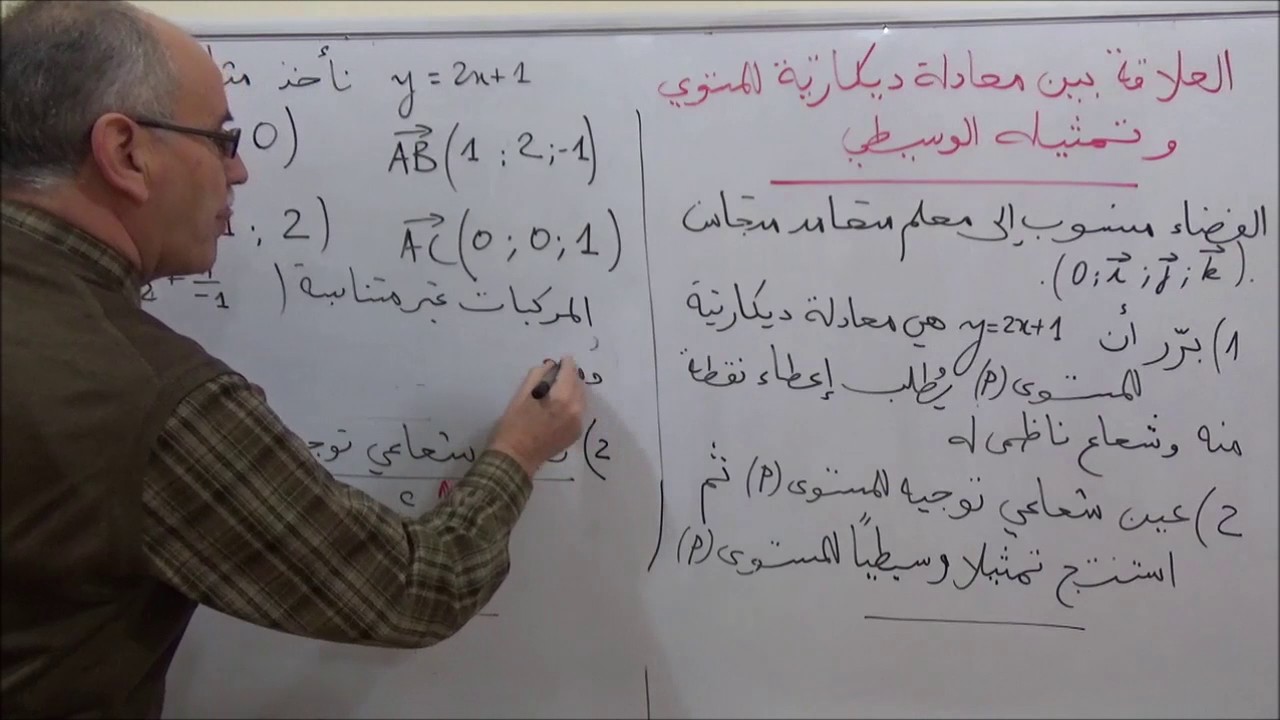 العلاقة بين معادلة ديكارتية للمستوي
وتمثيله الوسيطي
الفضاء منسوب إلى معلم متعامد متجانس
(O; i⃗; j⃗; k⃗).
1) برّر أن y=2x+1 هي معادلة ديكارتية
للمستوى (P) يُطلب إعطاء نقطة
منه وشعاع ناظمي له
2) عين شعاعي توجيه للمستوى (P) ثم
استنتج تمثيلا وسيطيًا للمستوى (P)
y = 2x+1 نأخذ
AB⃗(1 ; 2 ; -1) 0)
AC⃗(0 ; 0 ; 1) 1 ; 2)
المركبات غير متناسبة (
2) شعاعي